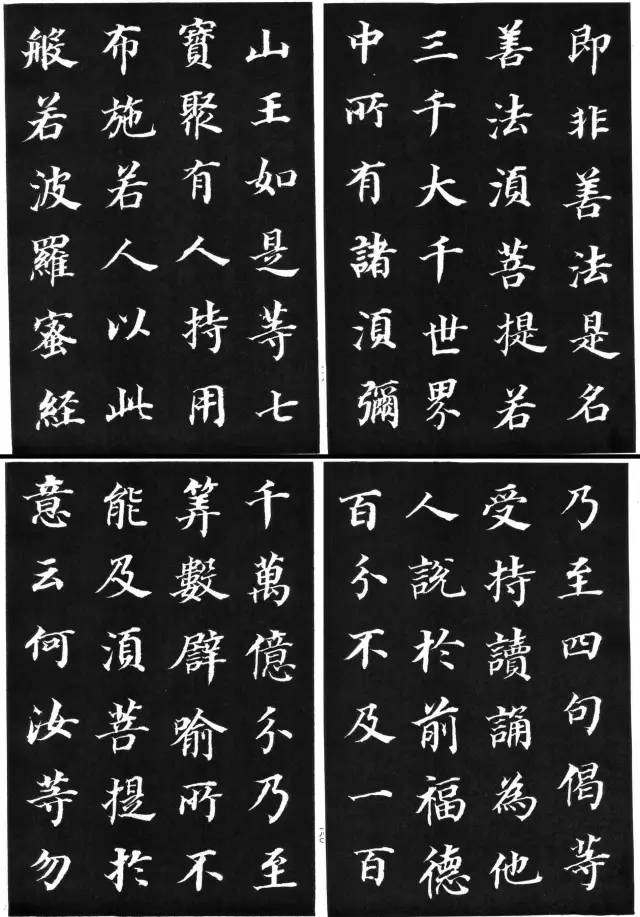 即非善法是名
善法湏菩提若
三千大千世界
中所有諸湏彌
山王如是等七
寶聚有人持用
布施若人以此
般若波羅蜜經
乃至四句偈等
受持讀誦為他
人說於前福德
百分不及一百
千萬億分乃至
筭數譬喻所不
能及湏菩提於
意云何汝等勿